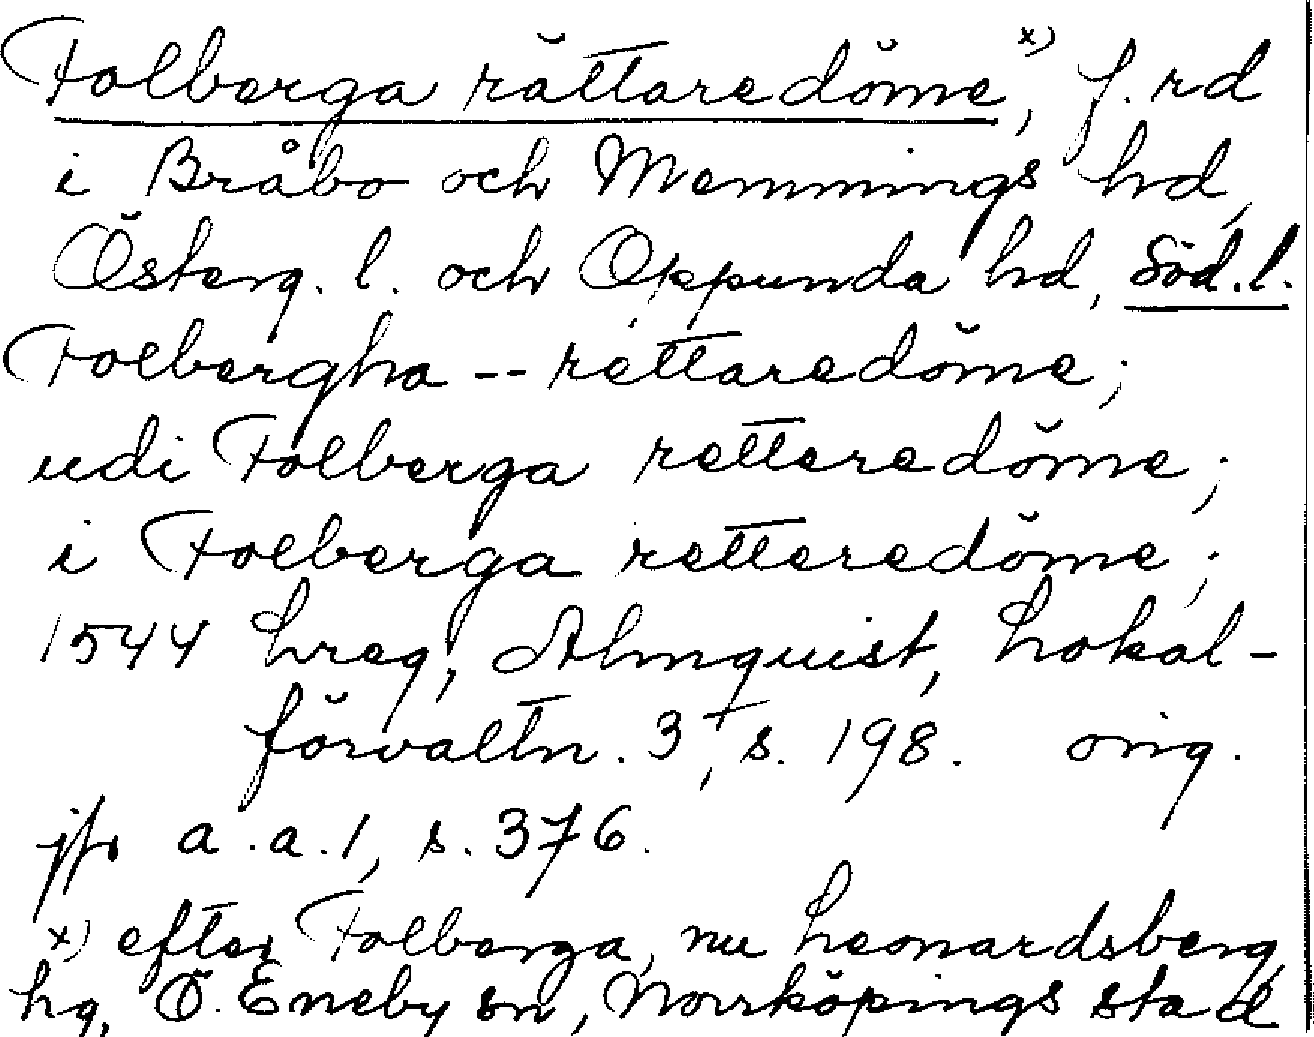 Folberga rättaredöme,x) f. rd
i Bråbo och Memmings hd,
Österg. l. och Oppunda hd, Söd. l.
Folbergha -- rettaredöme;
udi Folberga retteredöme;
i Folberga retteredöme;
1544 hreg, Almquist, Lokal-
förvaltn. 3, s. 198. orig.
jfr a.a. 1, s. 376.
x) efter Folberga, nu Leonardsberg,
hg, Ö. Eneby sn, Norrköpings stad